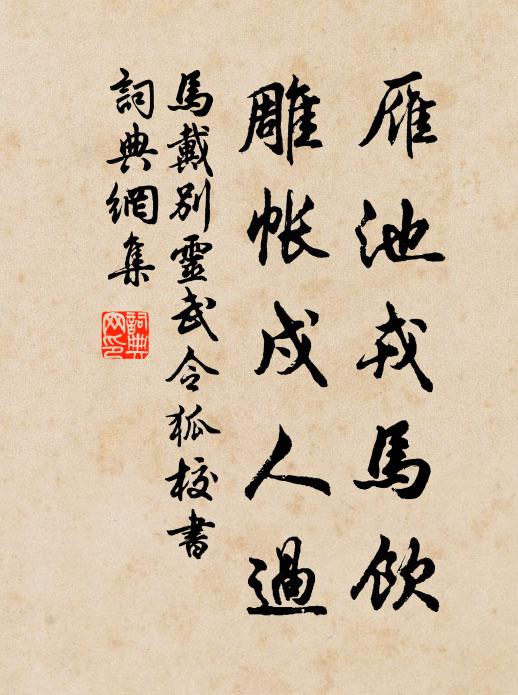 雁池戎馬飲
雕帐戍人過
馬戴別靈武令狐校書
詞典網集
詞典網印